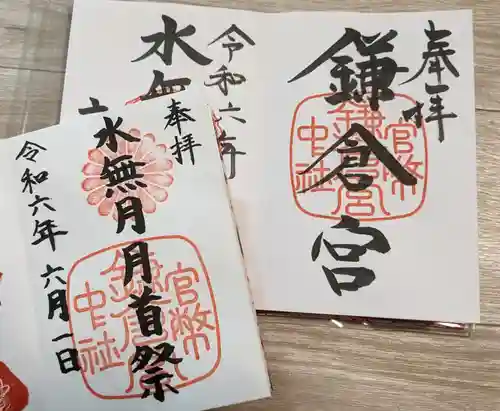 奉拝
鎌倉宮
官幣
鎌倉宮
中社
令和六年
水無
奉拝
水無月月首祭
令和六年 六月一日
官幣
鎌倉宮
中社